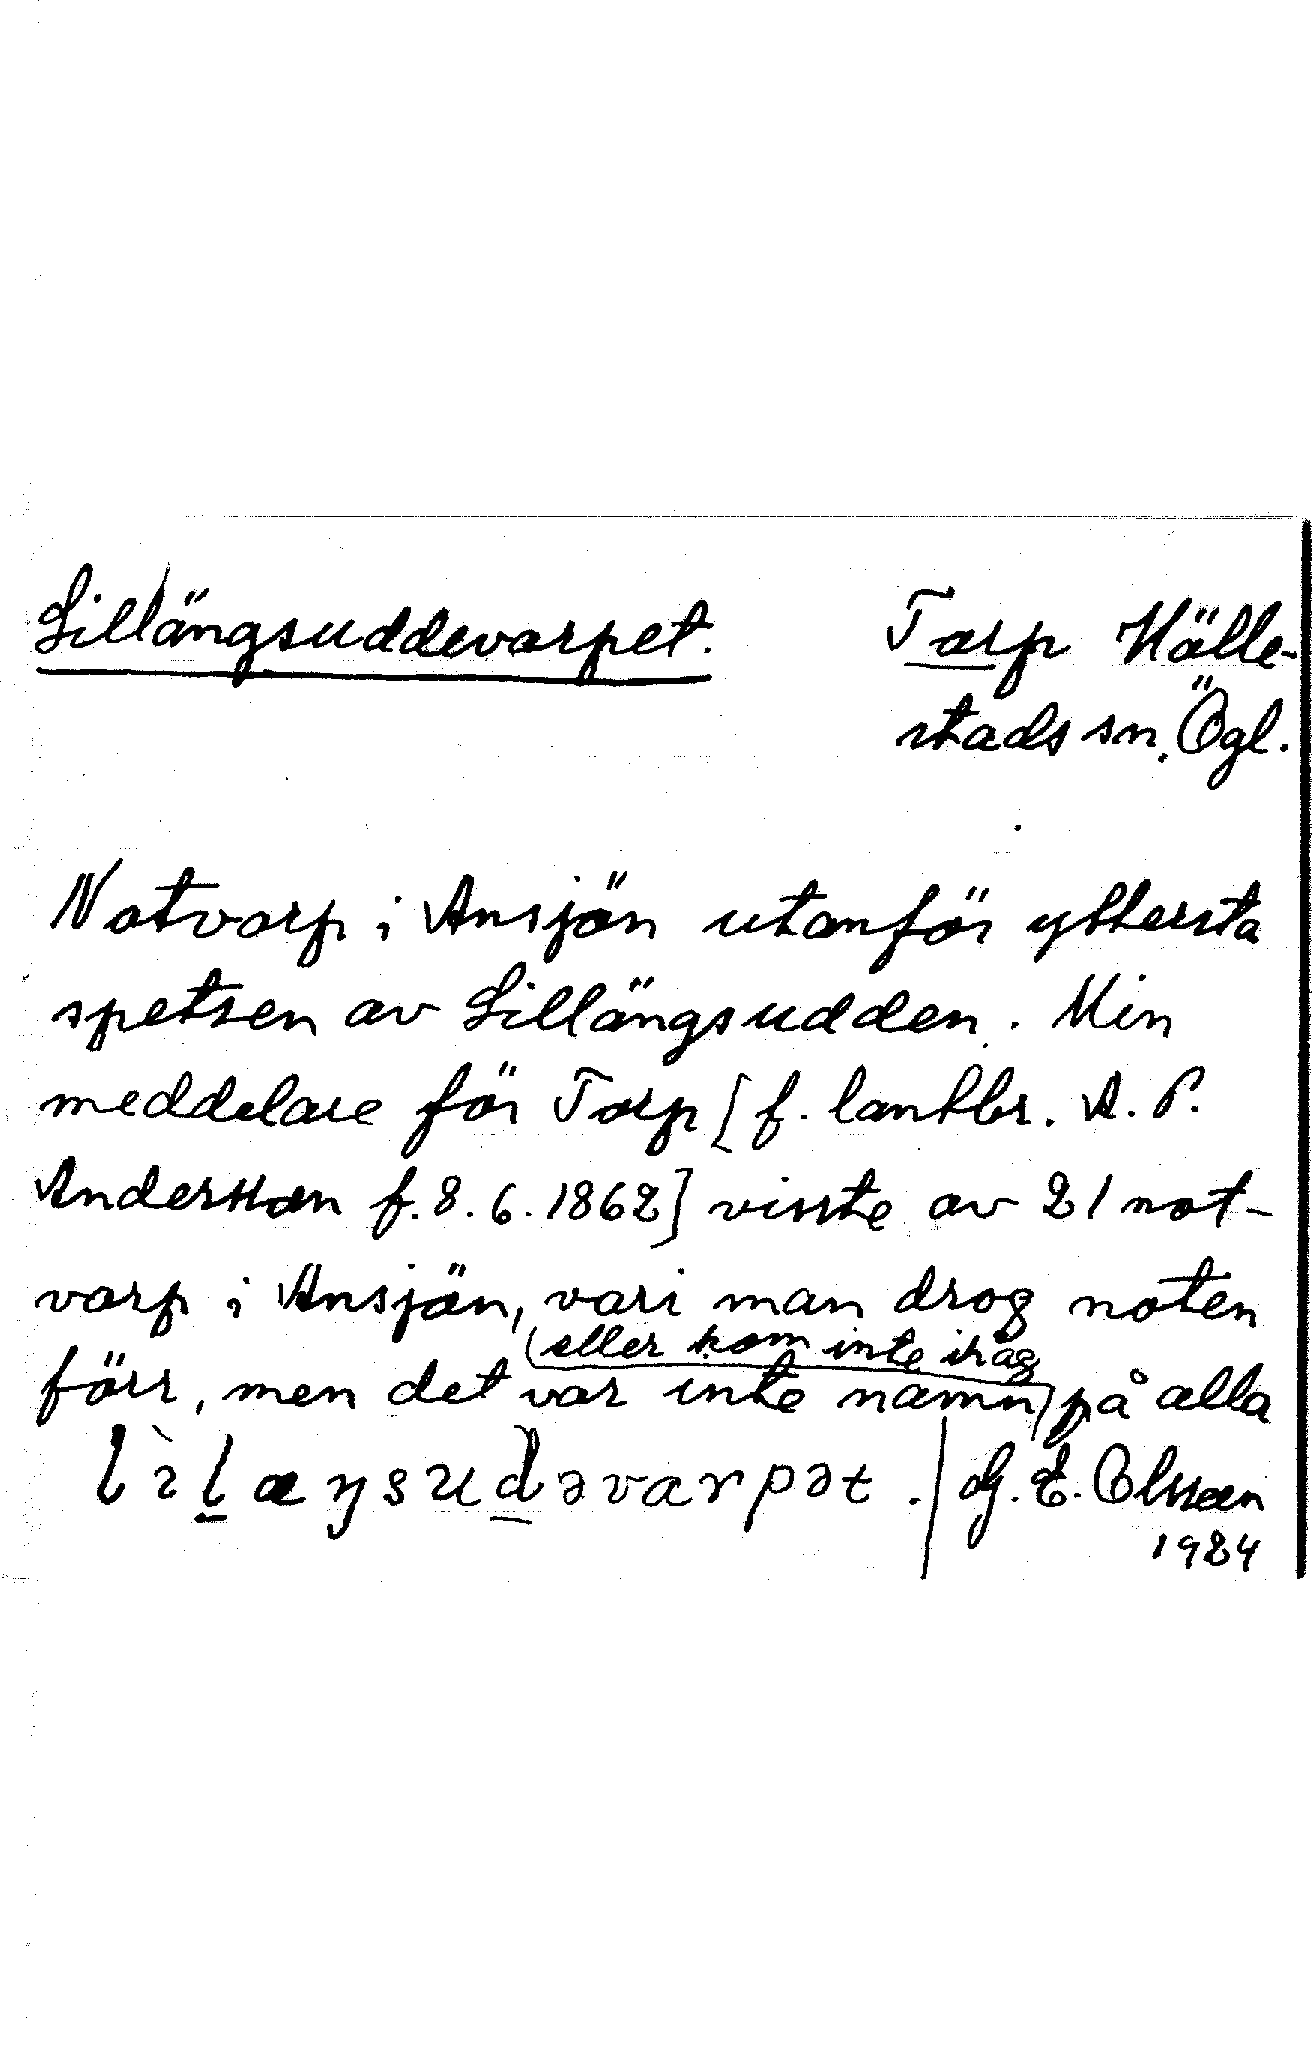 Lillängsuddevarpet. Torp Hälle-
stads sn, Ögl.
Notvarp i Ansjön utanför yttersta
spetsen av Lillängsudden. Min
meddelare för Torp [f. lantbr. A. P.
Andersson f. 8.6.1862] visste av 21 not-
varp i Ansjön, vari man drog noten
(eller kom inte ihåg
förr, men det var inte namn) på alla
lìlæŋsudəvarpət. G. E. Olsson
1924